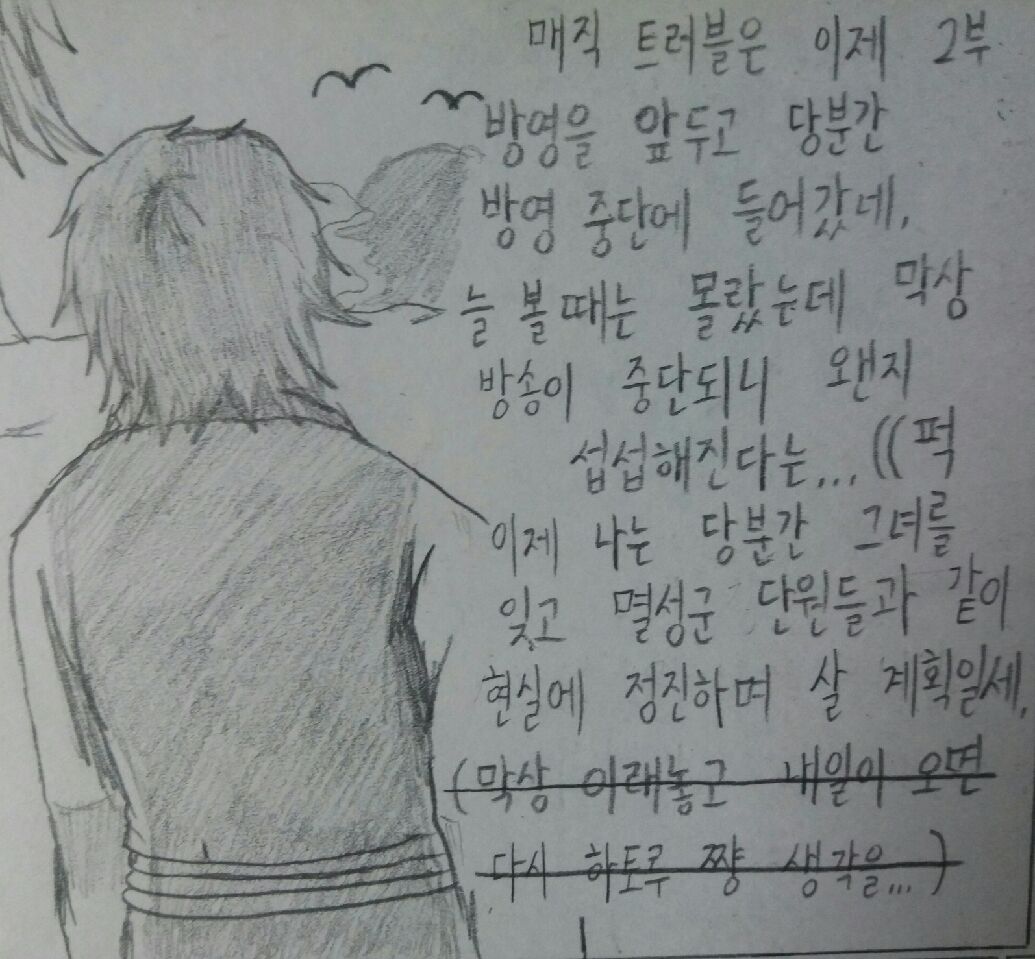 매직 트러블은 이제 2부
방영을 앞두고 당분간
방영 중단에 들어갔네,
늘 볼 때는 몰랐는데 막상
방송이 중단되니 왠지
섭섭해진다는... ((퍽
이제 나는 당분간 그녀를
잊고 멸성군 단원들과 같이
현실에 정진하며 살 계획일세,
(막상 이래놓고 내일이 오면
다시 하토루 쨩 생각을...)